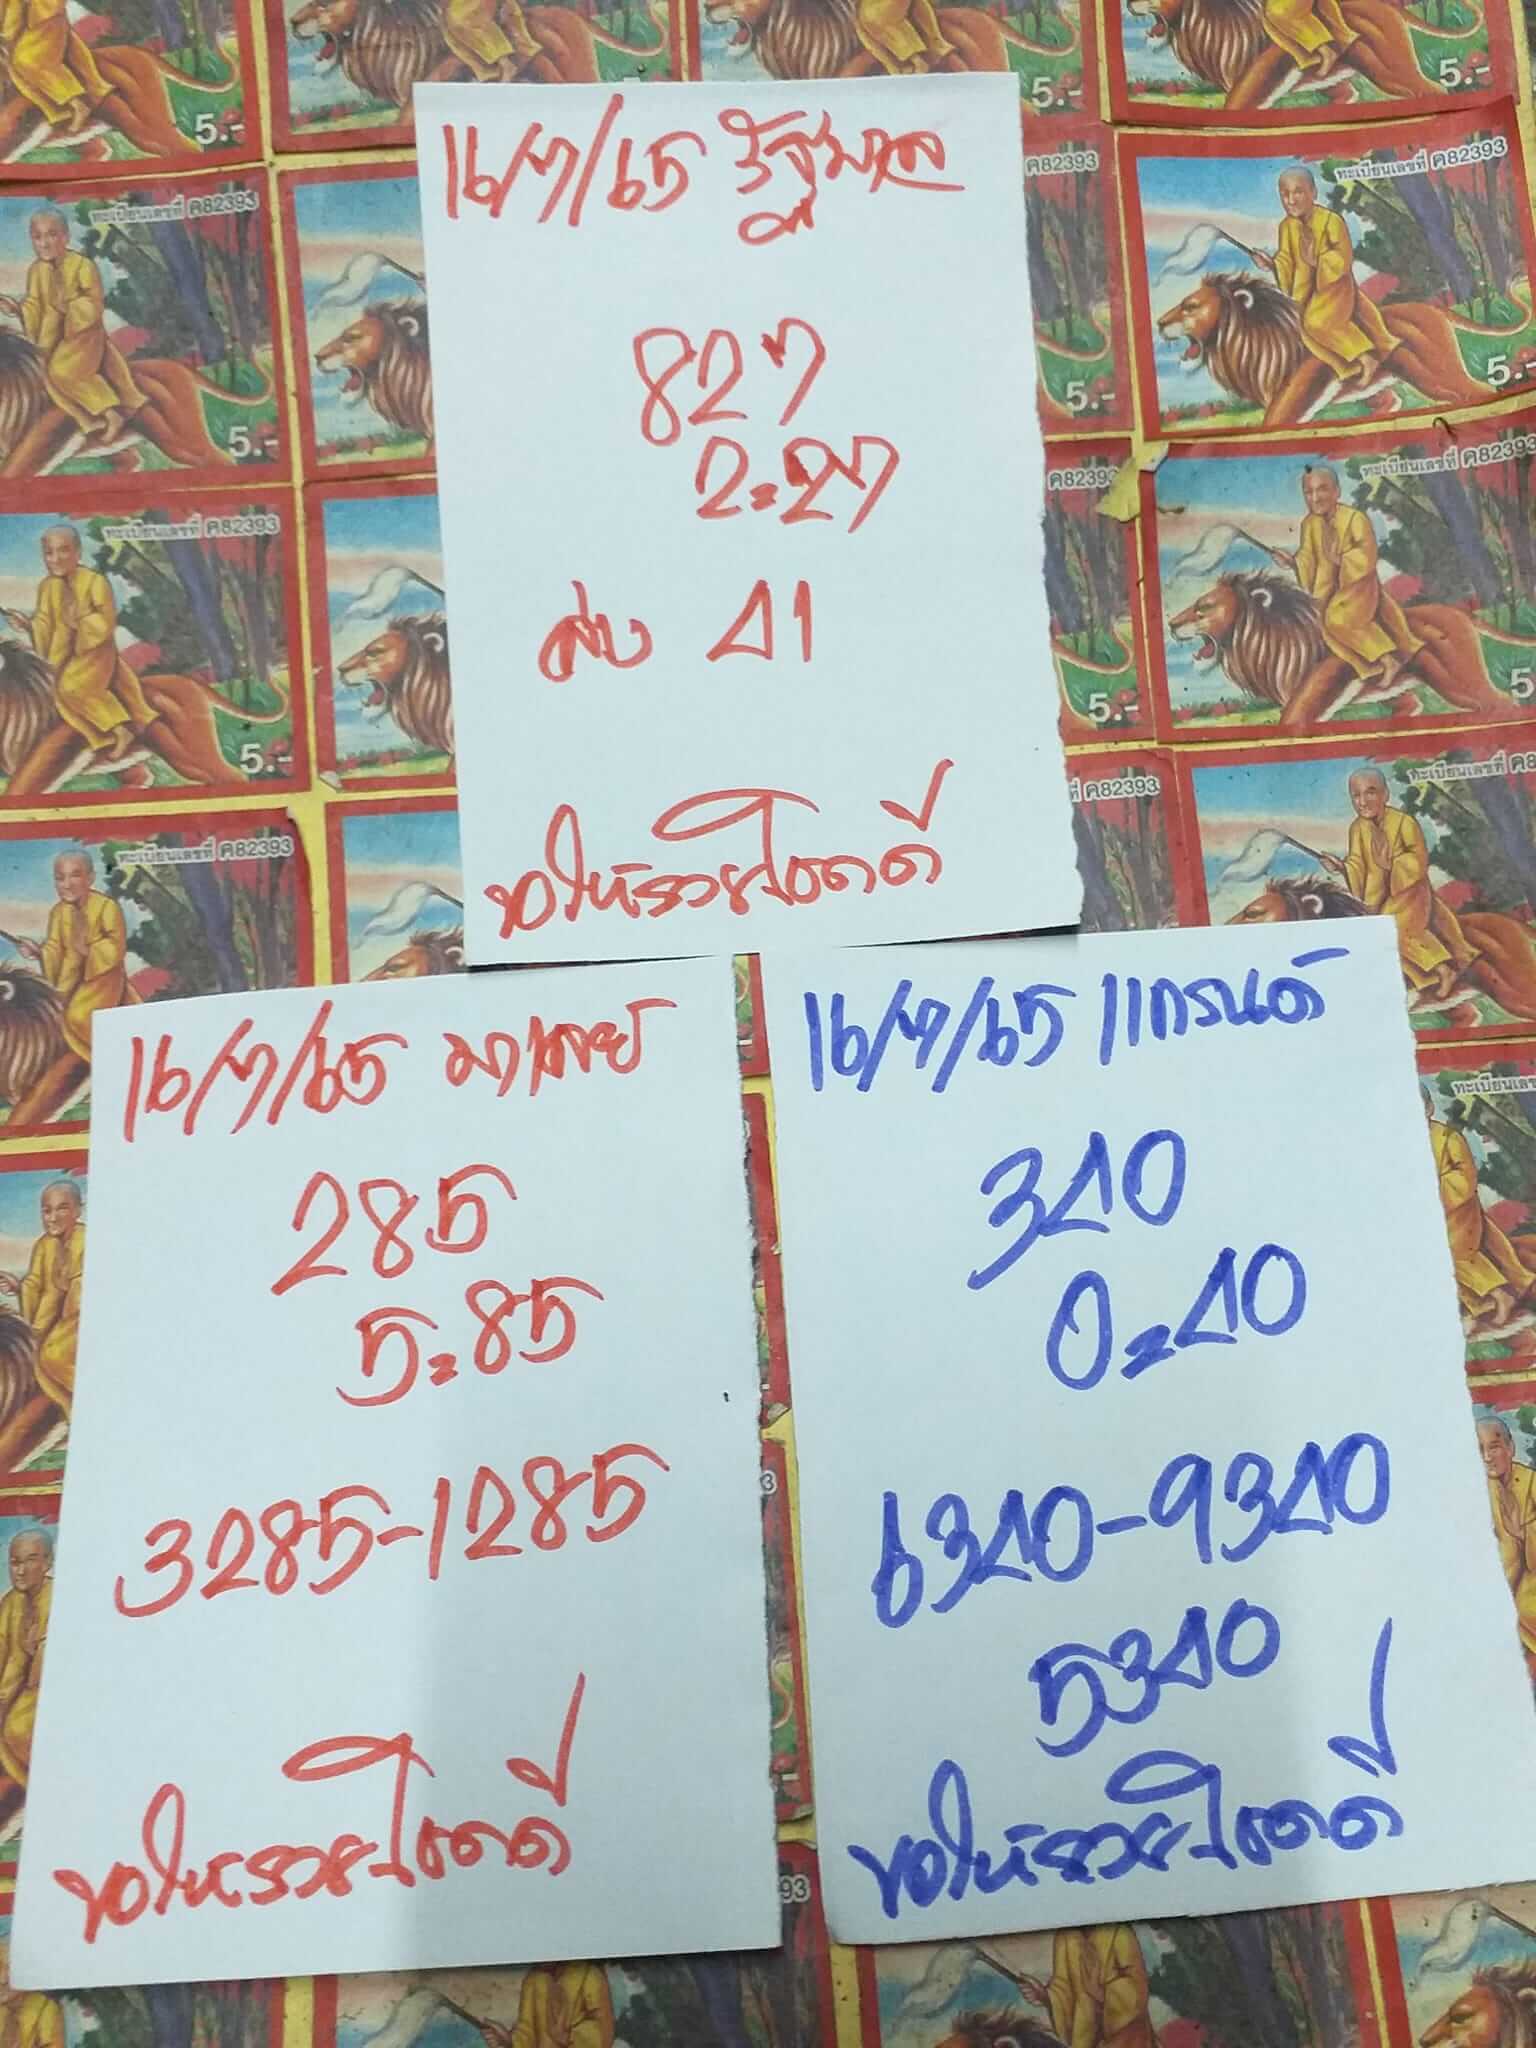 16/7/65 รัฐบาล
827
2=27
ล่าง 41
ขอให้รวยโชคดี
16/7/65 มาเลย์
285
5=85
3285-1285
ขอให้รวยโชคดี
16/7/65 แกรนด์
340
0=40
6340-9340
5340
ขอให้รวยโชคดี
ทะเบียนเลขที่ ค82393
5.-